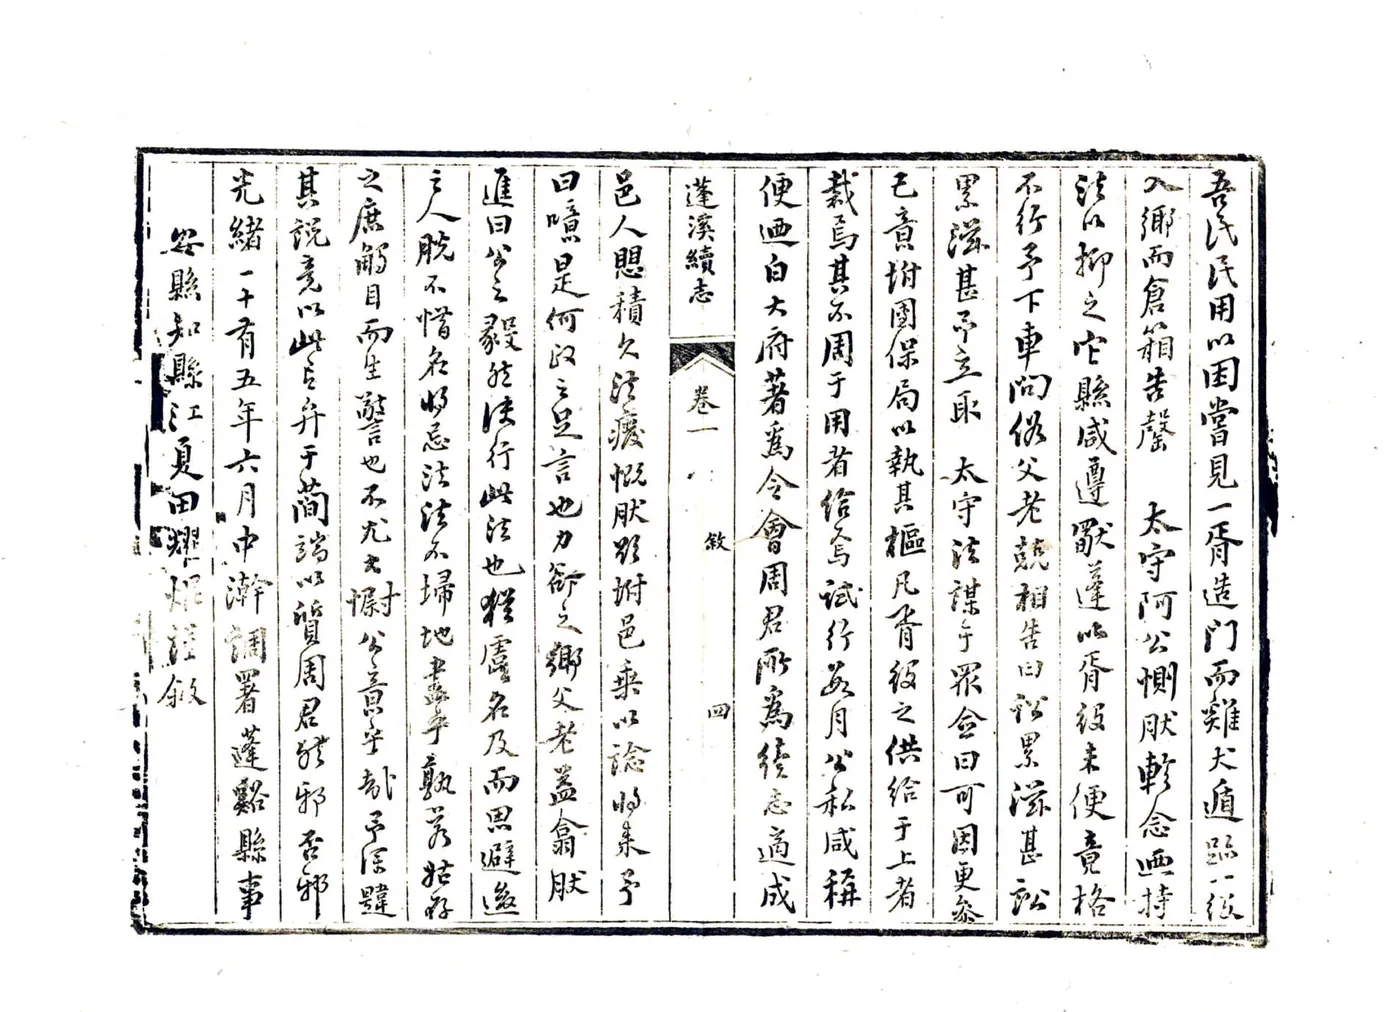 吾民民用以困嘗見一胥造門而雞犬遁跡一役
入鄉而倉箱告罄　太守阿公惻肰軫念迺持
法以抑之它縣咸遵猷蓬以胥役未便竟格
不行予下車問俗父老競相告曰訟累滋甚訟
累滋甚予立取　太守法謀于眾僉曰可因更參
己意坿團保局以執其樞凡胥役之供給于上者
裁焉其不周于用者給焉試行數月公私咸稱
便迺白大府著爲令會周君所爲續志適成
蓬溪續志
卷一
敘
四
邑人愳積久法廢慨肰欲坿邑乘以諗將來予
曰噫是何政之足言也力卻之鄉父老益翕肰
進曰公之毅然決行此法也猶虛名及而思避後
之人脫不惜名將忌法法不埽地盡乎孰若姑存
之庶觸目而生警也不尤大慰公意乎哉予深韙
其說竟以此言弁于蕳端以質周君然邪否邪
光緒一十有五年六月中澣調署蓬谿縣事
安縣知縣江夏田耀敘